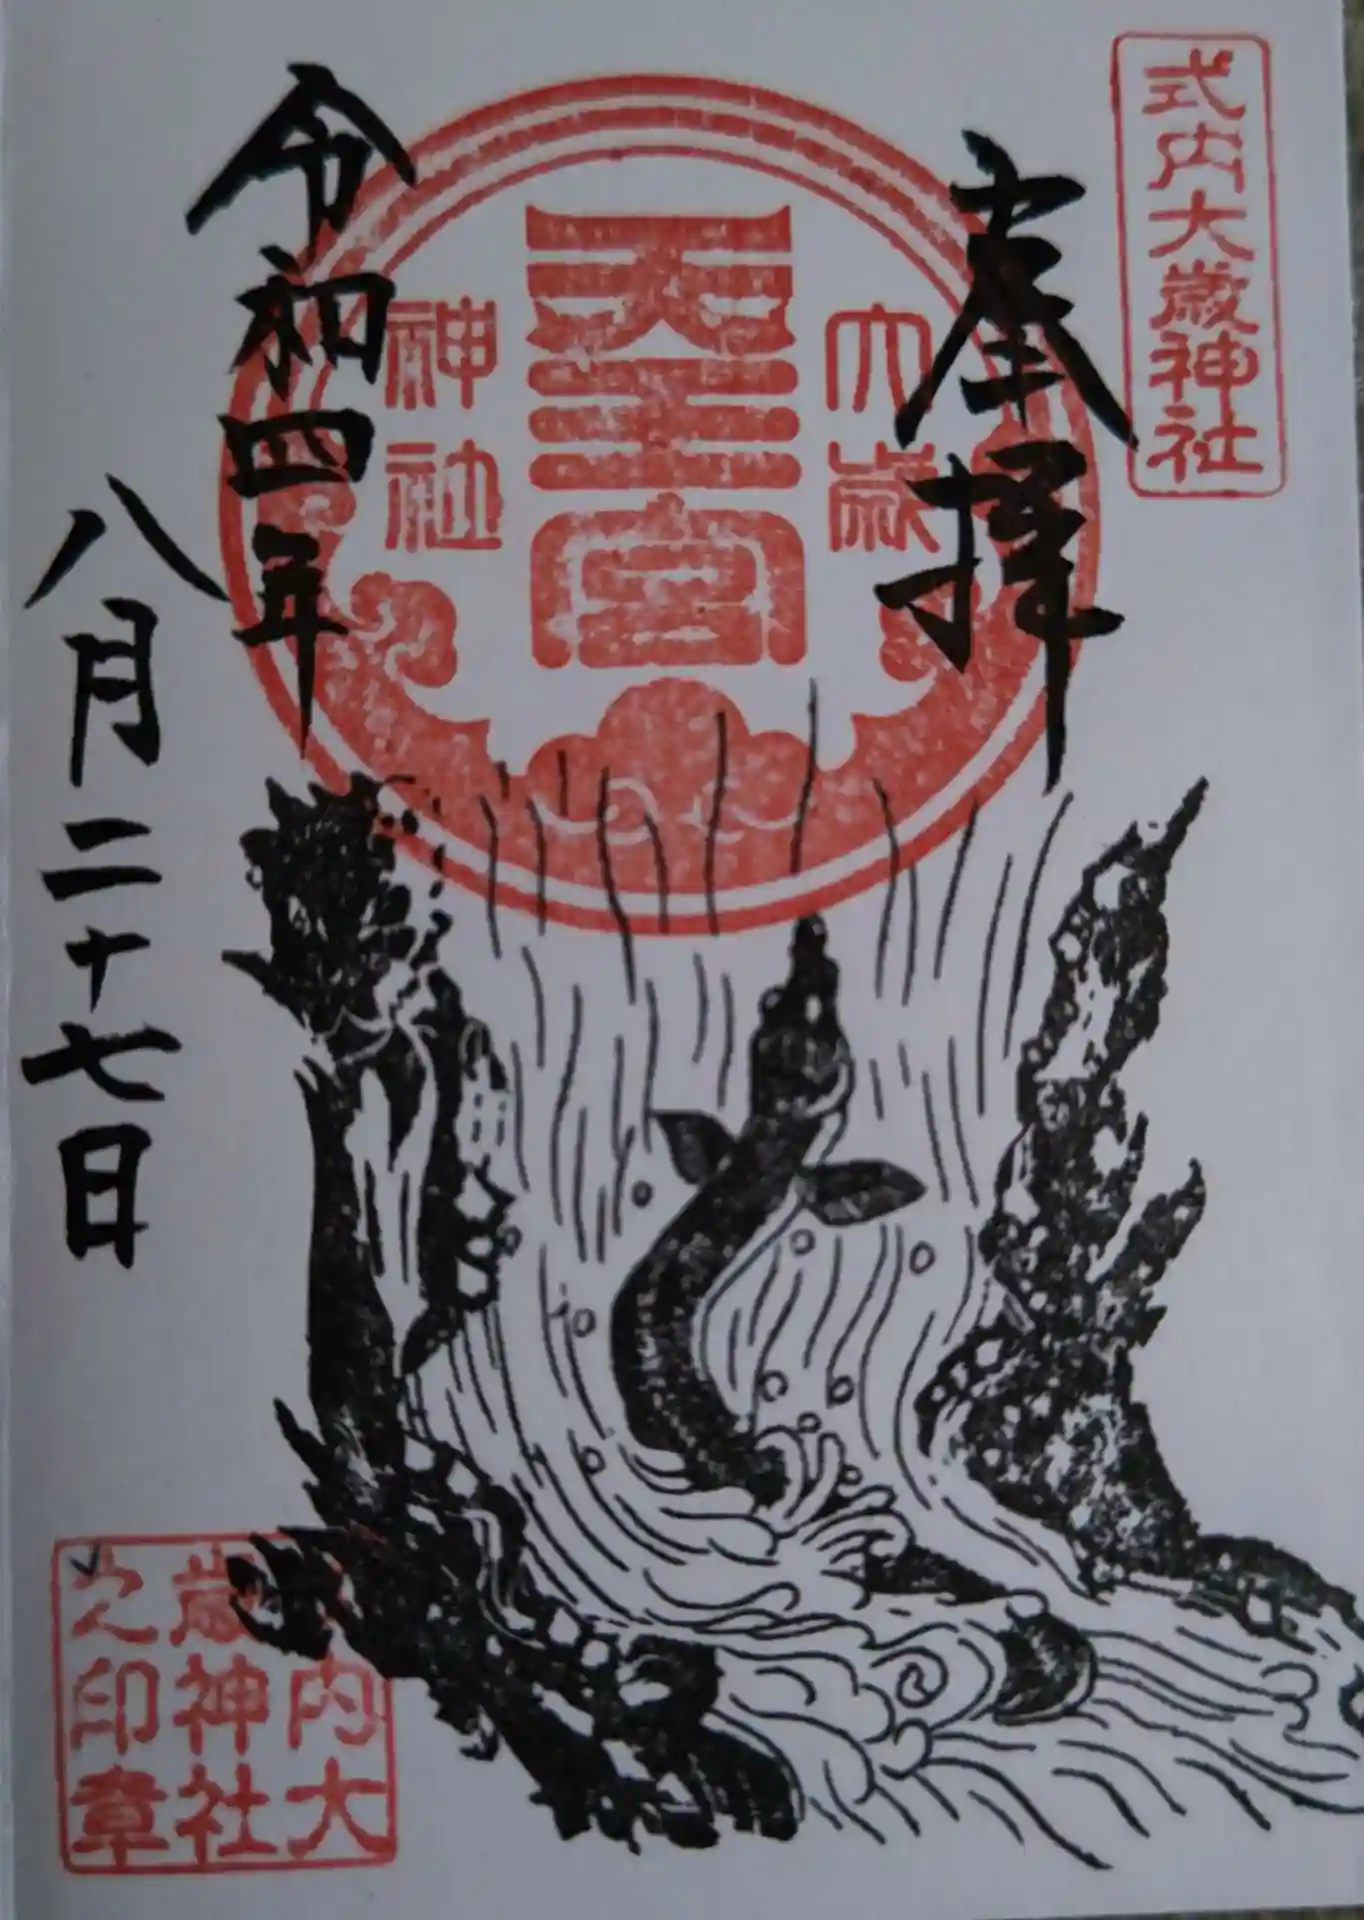 式内大歳神社
奉拝
大歳
天王宮
神社
令和四年
八月二十七日
内大
歳神社
之印章